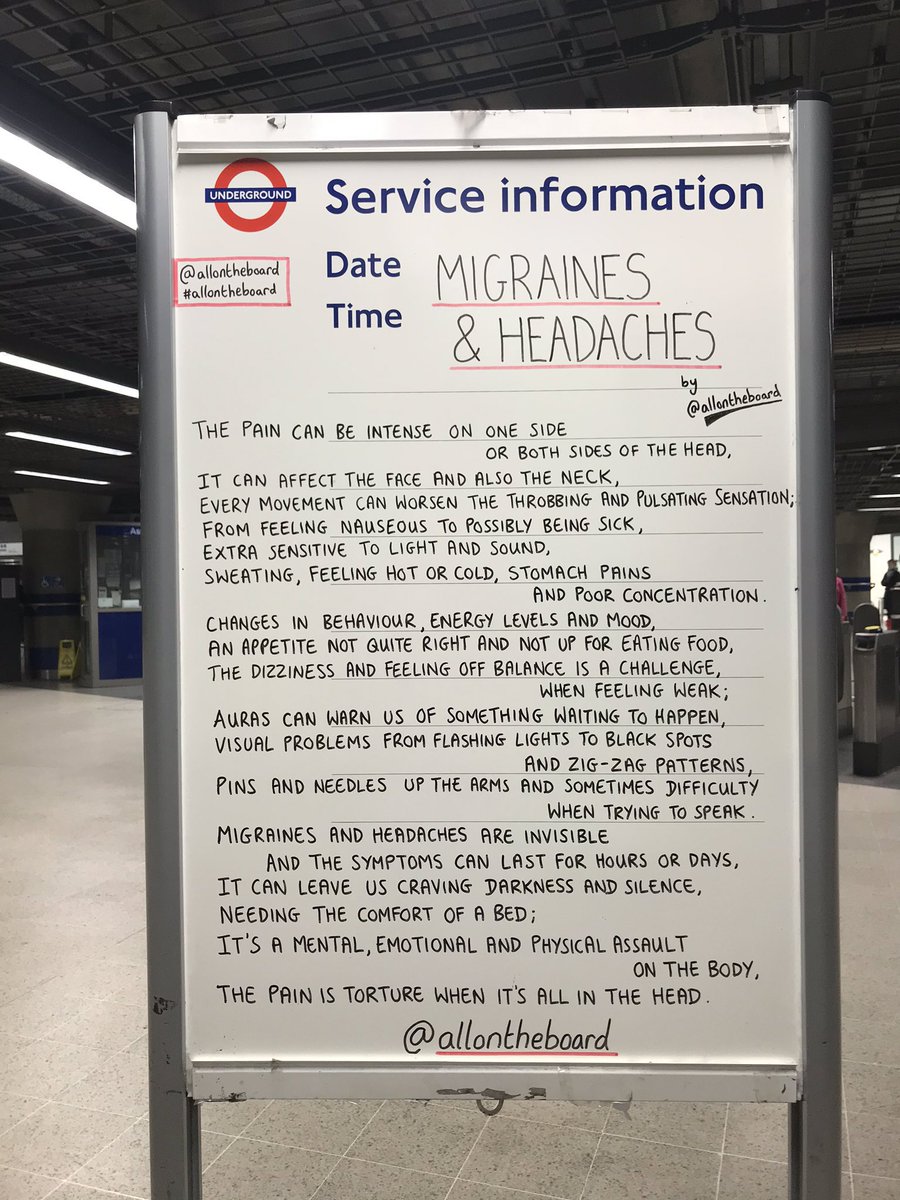 UNDERGROUND
Service information
@allontheboard
#allontheboard
Date
Time
MIGRAINES
& HEADACHES
by
@allontheboard
THE PAIN CAN BE INTENSE ON ONE SIDE
OR BOTH SIDES OF THE HEAD,
IT CAN AFFECT THE FACE AND ALSO THE NECK,
EVERY MOVEMENT CAN WORSEN THE THROBBING AND PULSATING SENSATION;
FROM FEELING NAUSEOUS TO POSSIBLY BEING SICK,
EXTRA SENSITIVE TO LIGHT AND SOUND,
SWEATING, FEELING HOT OR COLD, STOMACH PAINS
AND POOR CONCENTRATION.
CHANGES IN BEHAVIOUR, ENERGY LEVELS AND MOOD,
AN APPETITE NOT QUITE RIGHT AND NOT UP FOR EATING FOOD,
THE DIZZINESS AND FEELING OFF BALANCE IS A CHALLENGE,
WHEN FEELING WEAK;
AURAS CAN WARN US OF SOMETHING WAITING TO HAPPEN,
VISUAL PROBLEMS FROM FLASHING LIGHTS TO BLACK SPOTS
AND ZIG-ZAG PATTERNS,
PINS AND NEEDLES UP THE ARMS AND SOMETIMES DIFFICULTY
WHEN TRYING TO SPEAK.
MIGRAINES AND HEADACHES ARE INVISIBLE
AND THE SYMPTOMS CAN LAST FOR HOURS OR DAYS,
IT CAN LEAVE US CRAVING DARKNESS AND SILENCE,
NEEDING THE COMFORT OF A BED;
IT'S A MENTAL, EMOTIONAL AND PHYSICAL ASSAULT
ON THE BODY,
THE PAIN IS TORTURE WHEN IT'S ALL IN THE HEAD.
@allontheboard